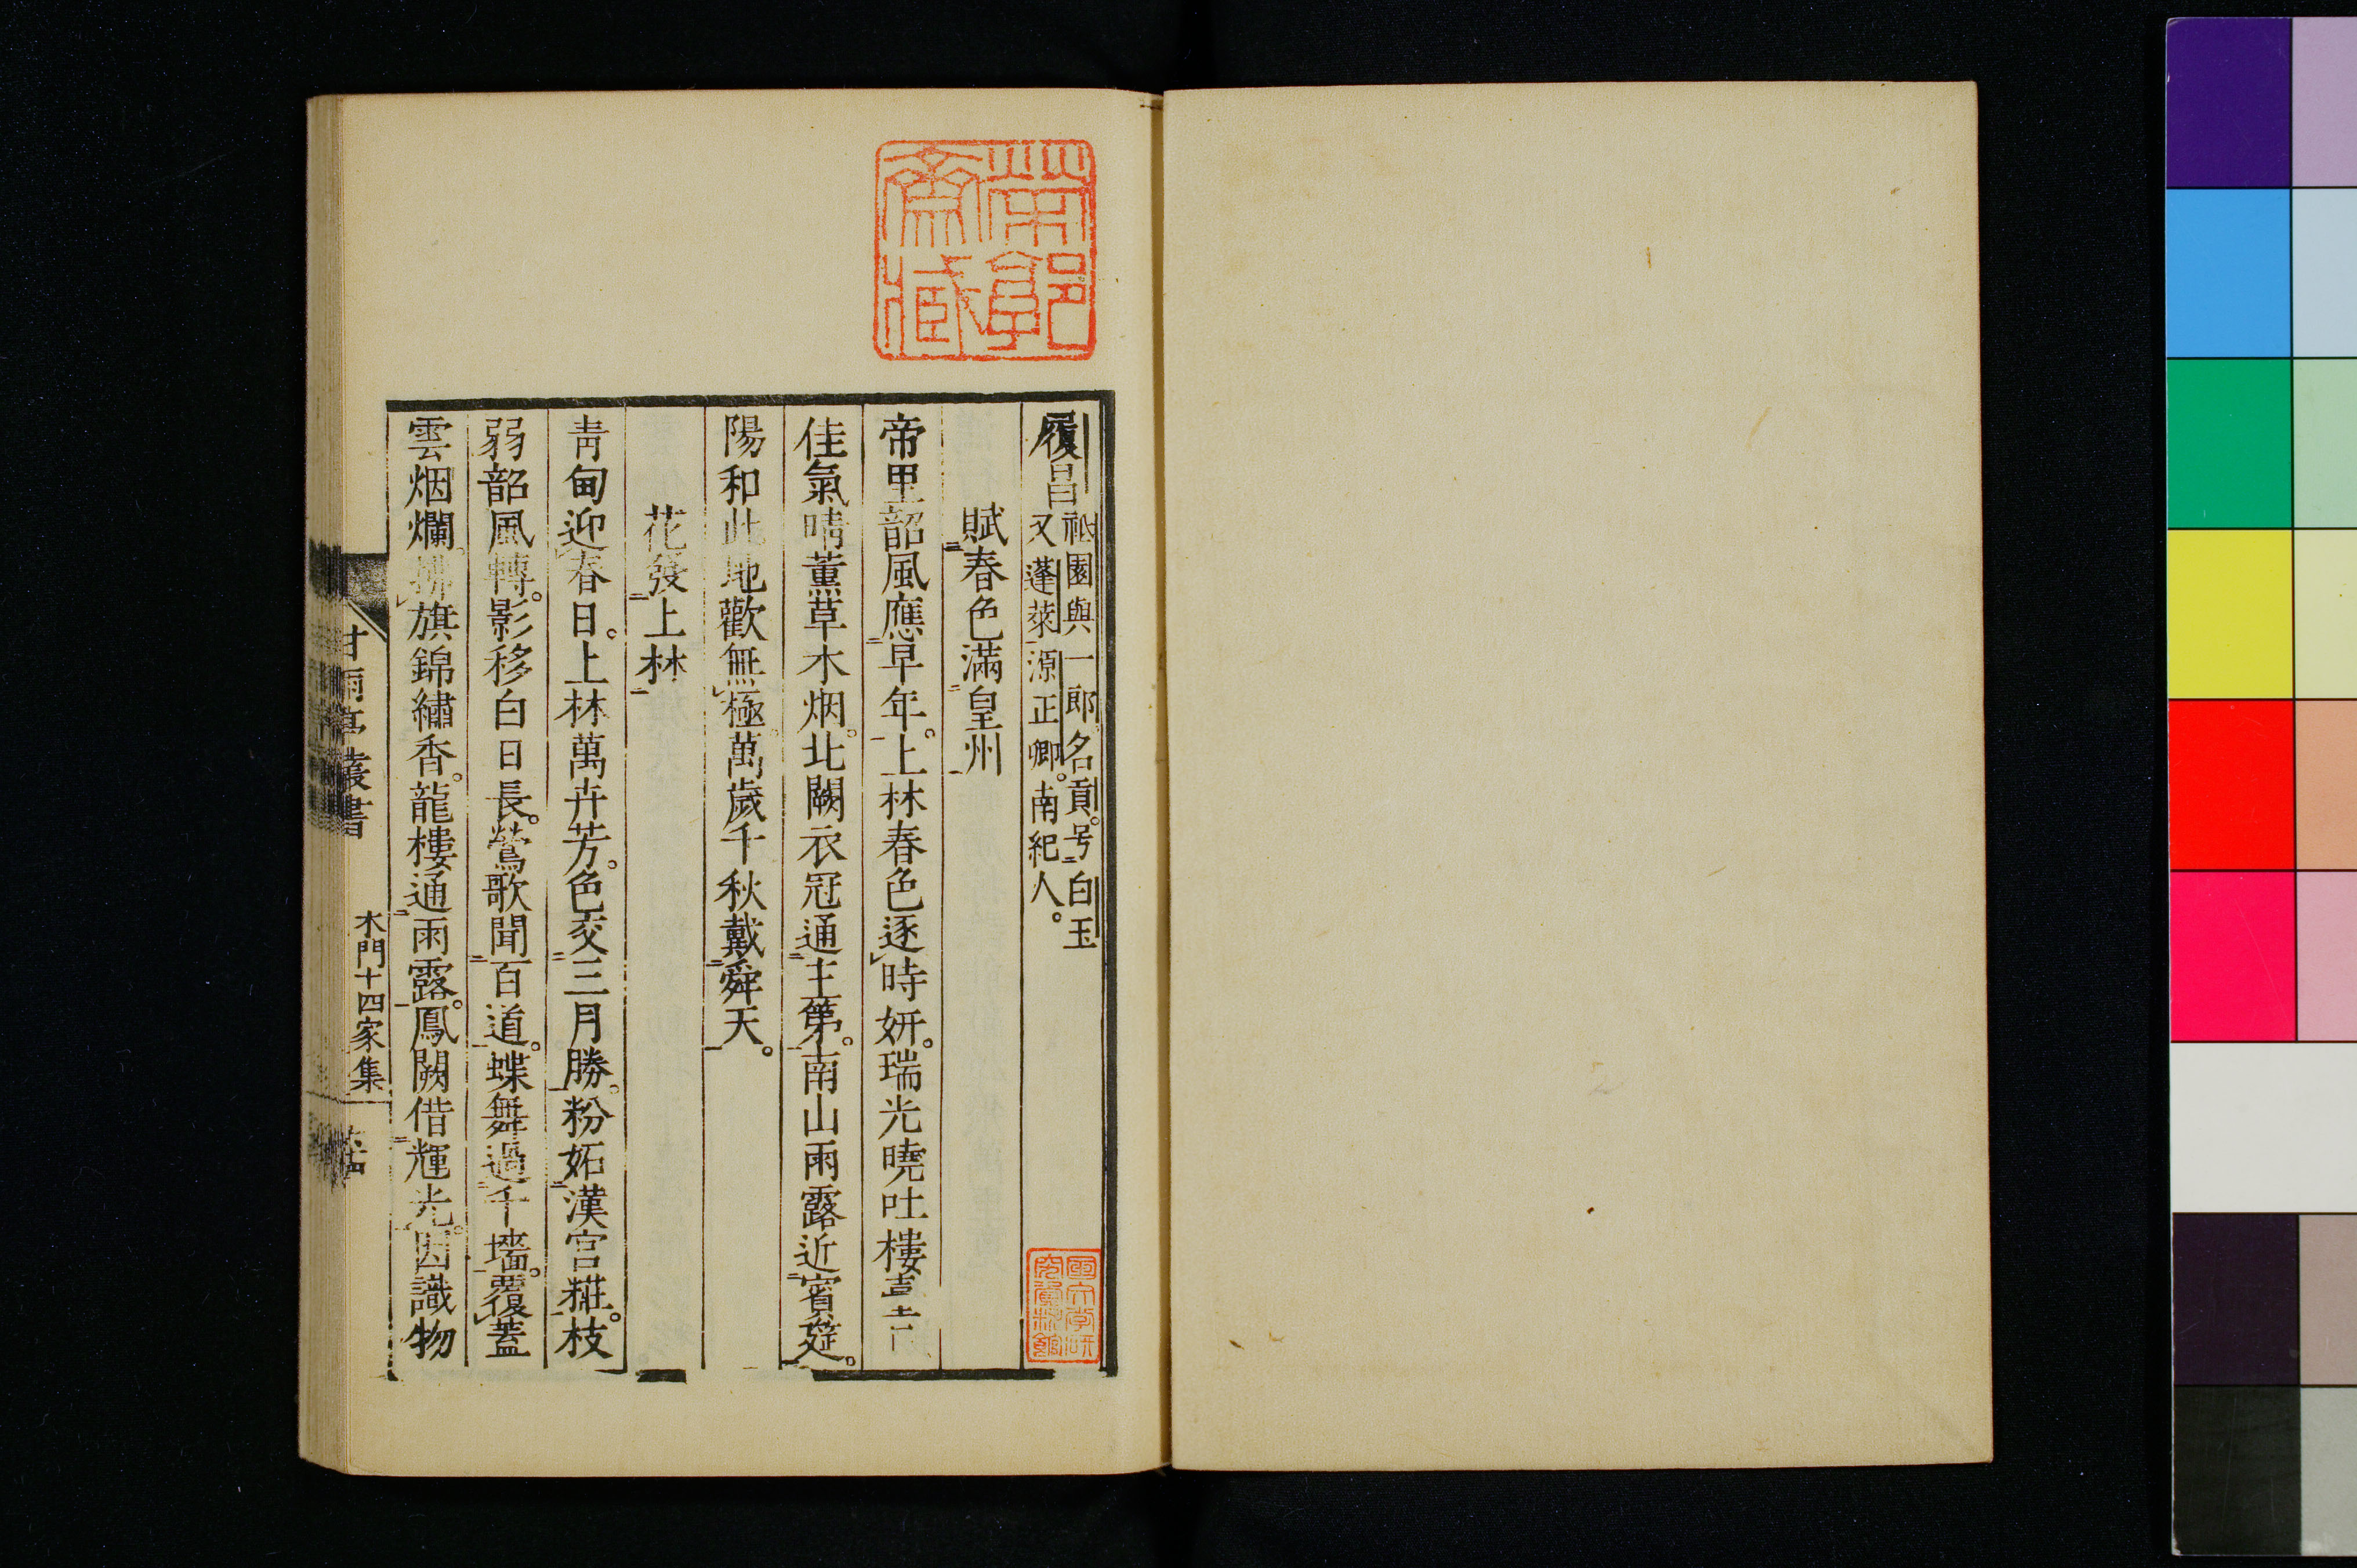 履昌 祗園與一郎名貢。号白玉
又蓬萊源正卿。南紀人。
賦春色滿皇州
帝里韶風應早年。上林春色逐時妍。瑞光曉吐樓臺
佳氣晴薰草木烟。北闕衣冠通主第。南山雨露近賓筵。
陽和此地歡無極。萬歲千秋戴舜天。
花發上林
青甸迎春日。上林萬卉芳。色交三月勝。粉妬漢宮粧。枝
弱韶風轉。影移白日長。鶯歌聞百道。蝶舞過千墻。覆蓋
雲烟爛。拂旗錦繡香。龍樓通雨露。鳳闕借輝光。因識物
甘雨亭叢書
木門十四家集